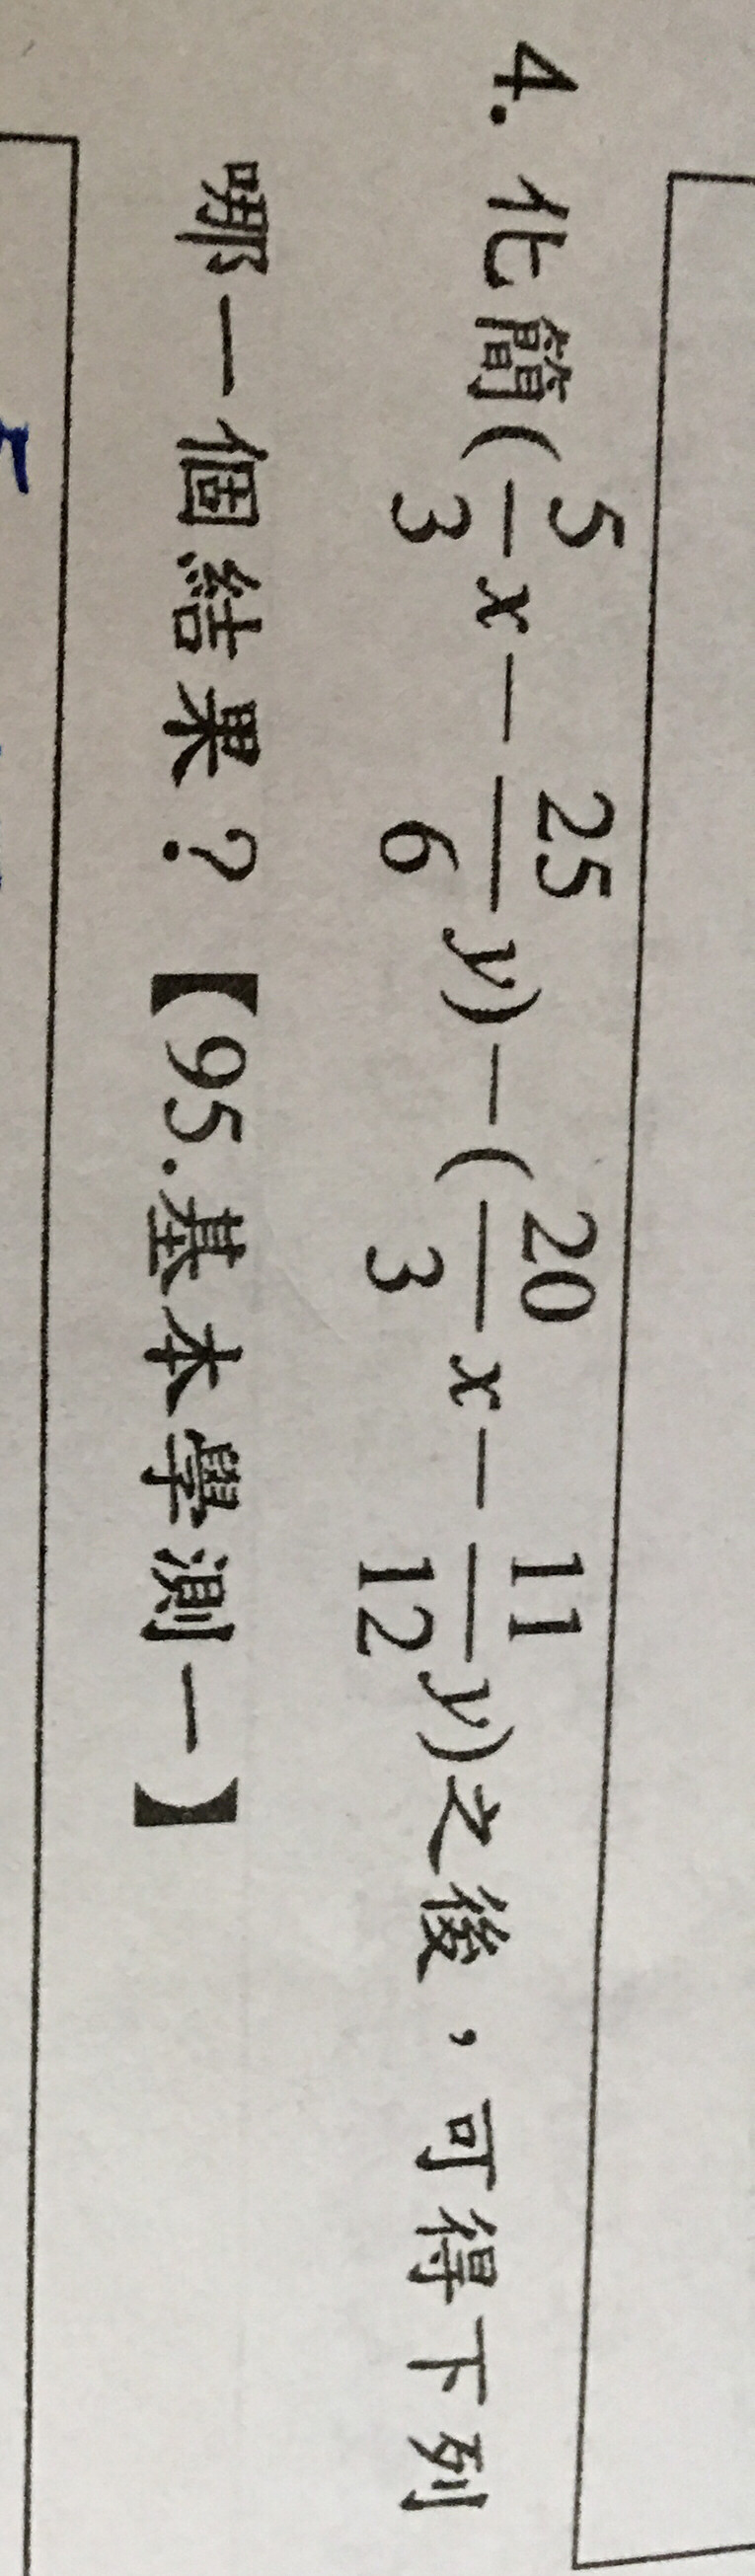 4. 化簡(5/3 x − 25/6 y) − (20/3 x − 11/12 y)之後，可得下列
哪一個結果？【95.基本學測一】